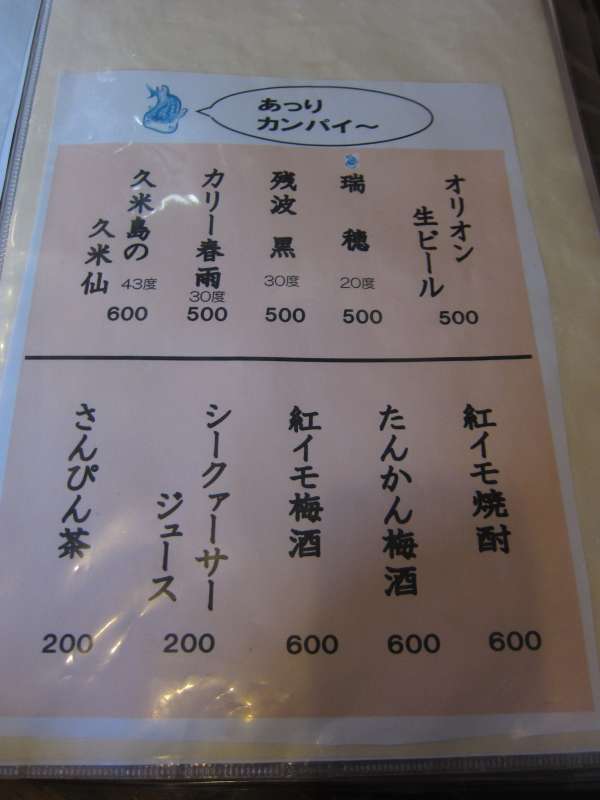 あっり
カンパイ～
オリオン
生ビール
500
瑞穂
20度
500
残波 黒
30度
500
カリー春雨
30度
500
久米島の
久米仙
43度
600
紅イモ焼酎
600
たんかん梅酒
600
紅イモ梅酒
600
シークァーサー
ジュース
200
さんぴん茶
200